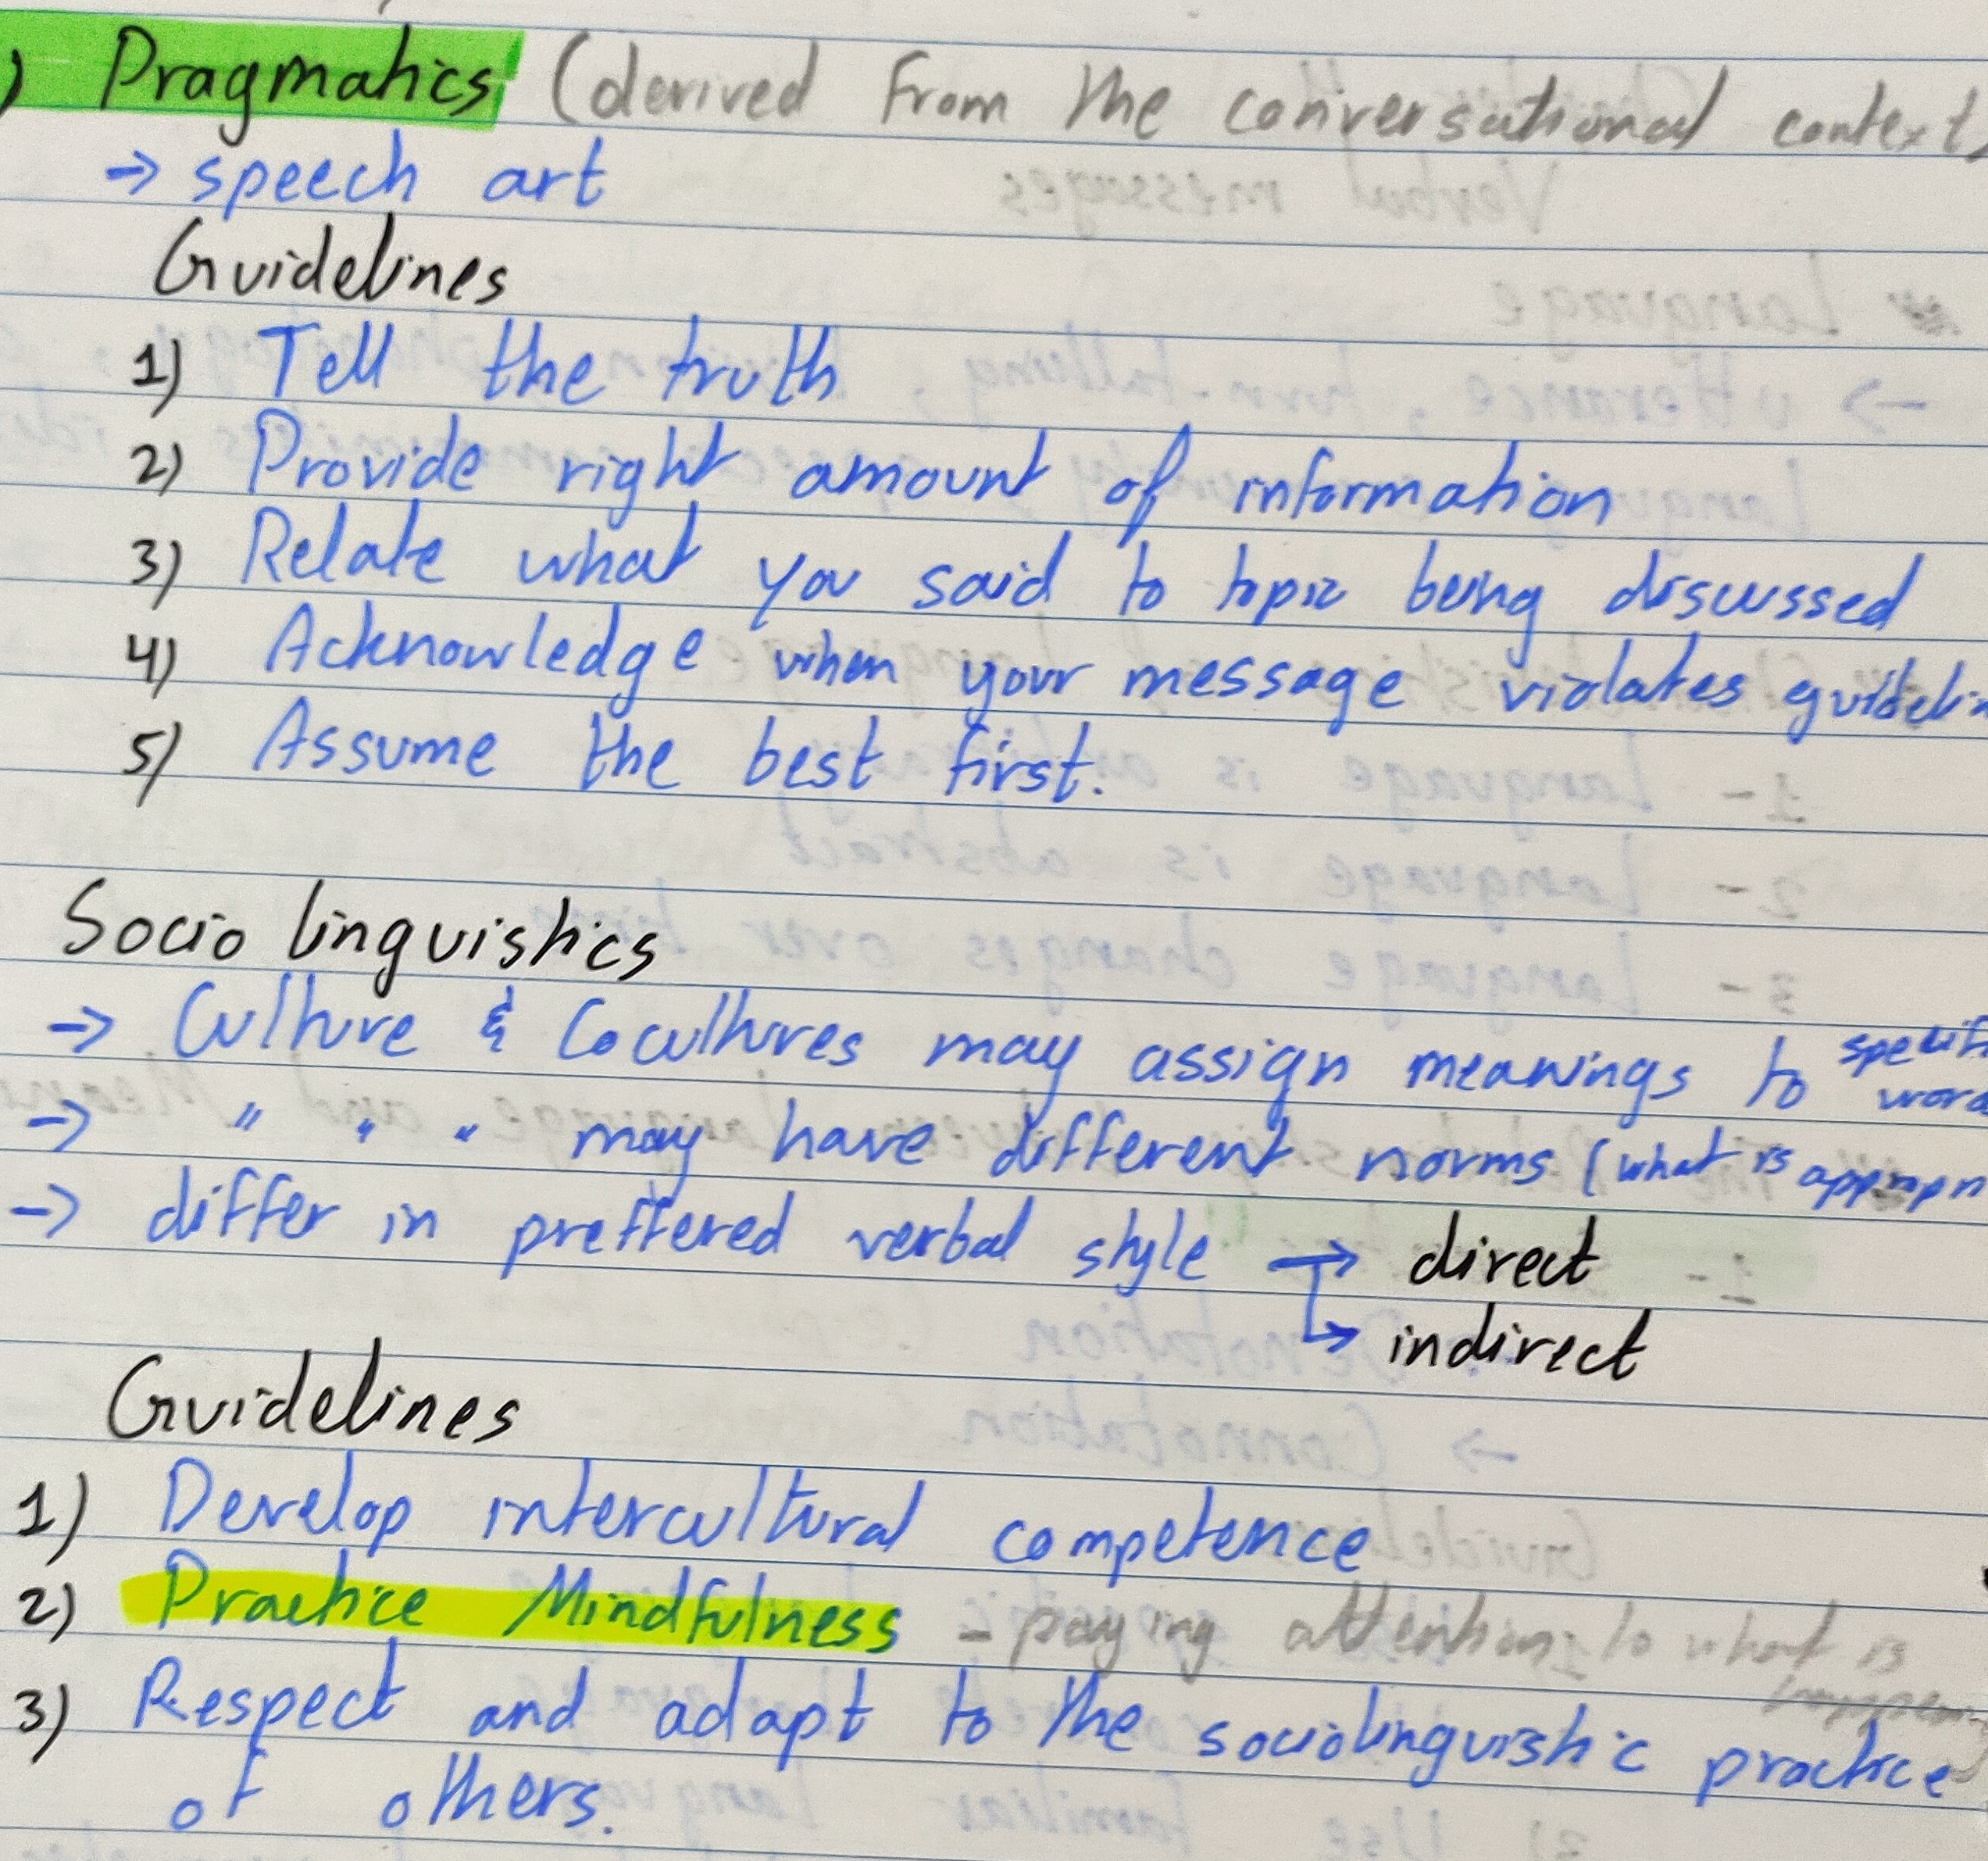 ) Pragmatics (derived from the conversational context)
→ speech art
Guidelines
1) Tell the truth
2) Provide right amount of information
3) Relate what you said to topic being discussed
4) Acknowledge when your message violates guidelin
5) Assume the best first.
Socio linguistics
→ Culture & Cocultures may assign meanings to specif
word
→ " " " may have different norms (what is appropri
→ differ in preffered verbal style → direct
↳ indirect
Guidelines
1) Develop intercultural competence
2) Practice Mindfulness - paying attention to what is
3) Respect and adapt to the sociolinguistic practice
of others.